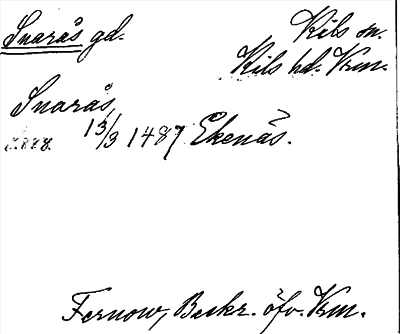 Snarås gd.
Kils sn.
Kils hd. Vrm.
Snarås,
13/3 1487 Ekenäs.
Fernow, Beskr. öfv. Vrm.